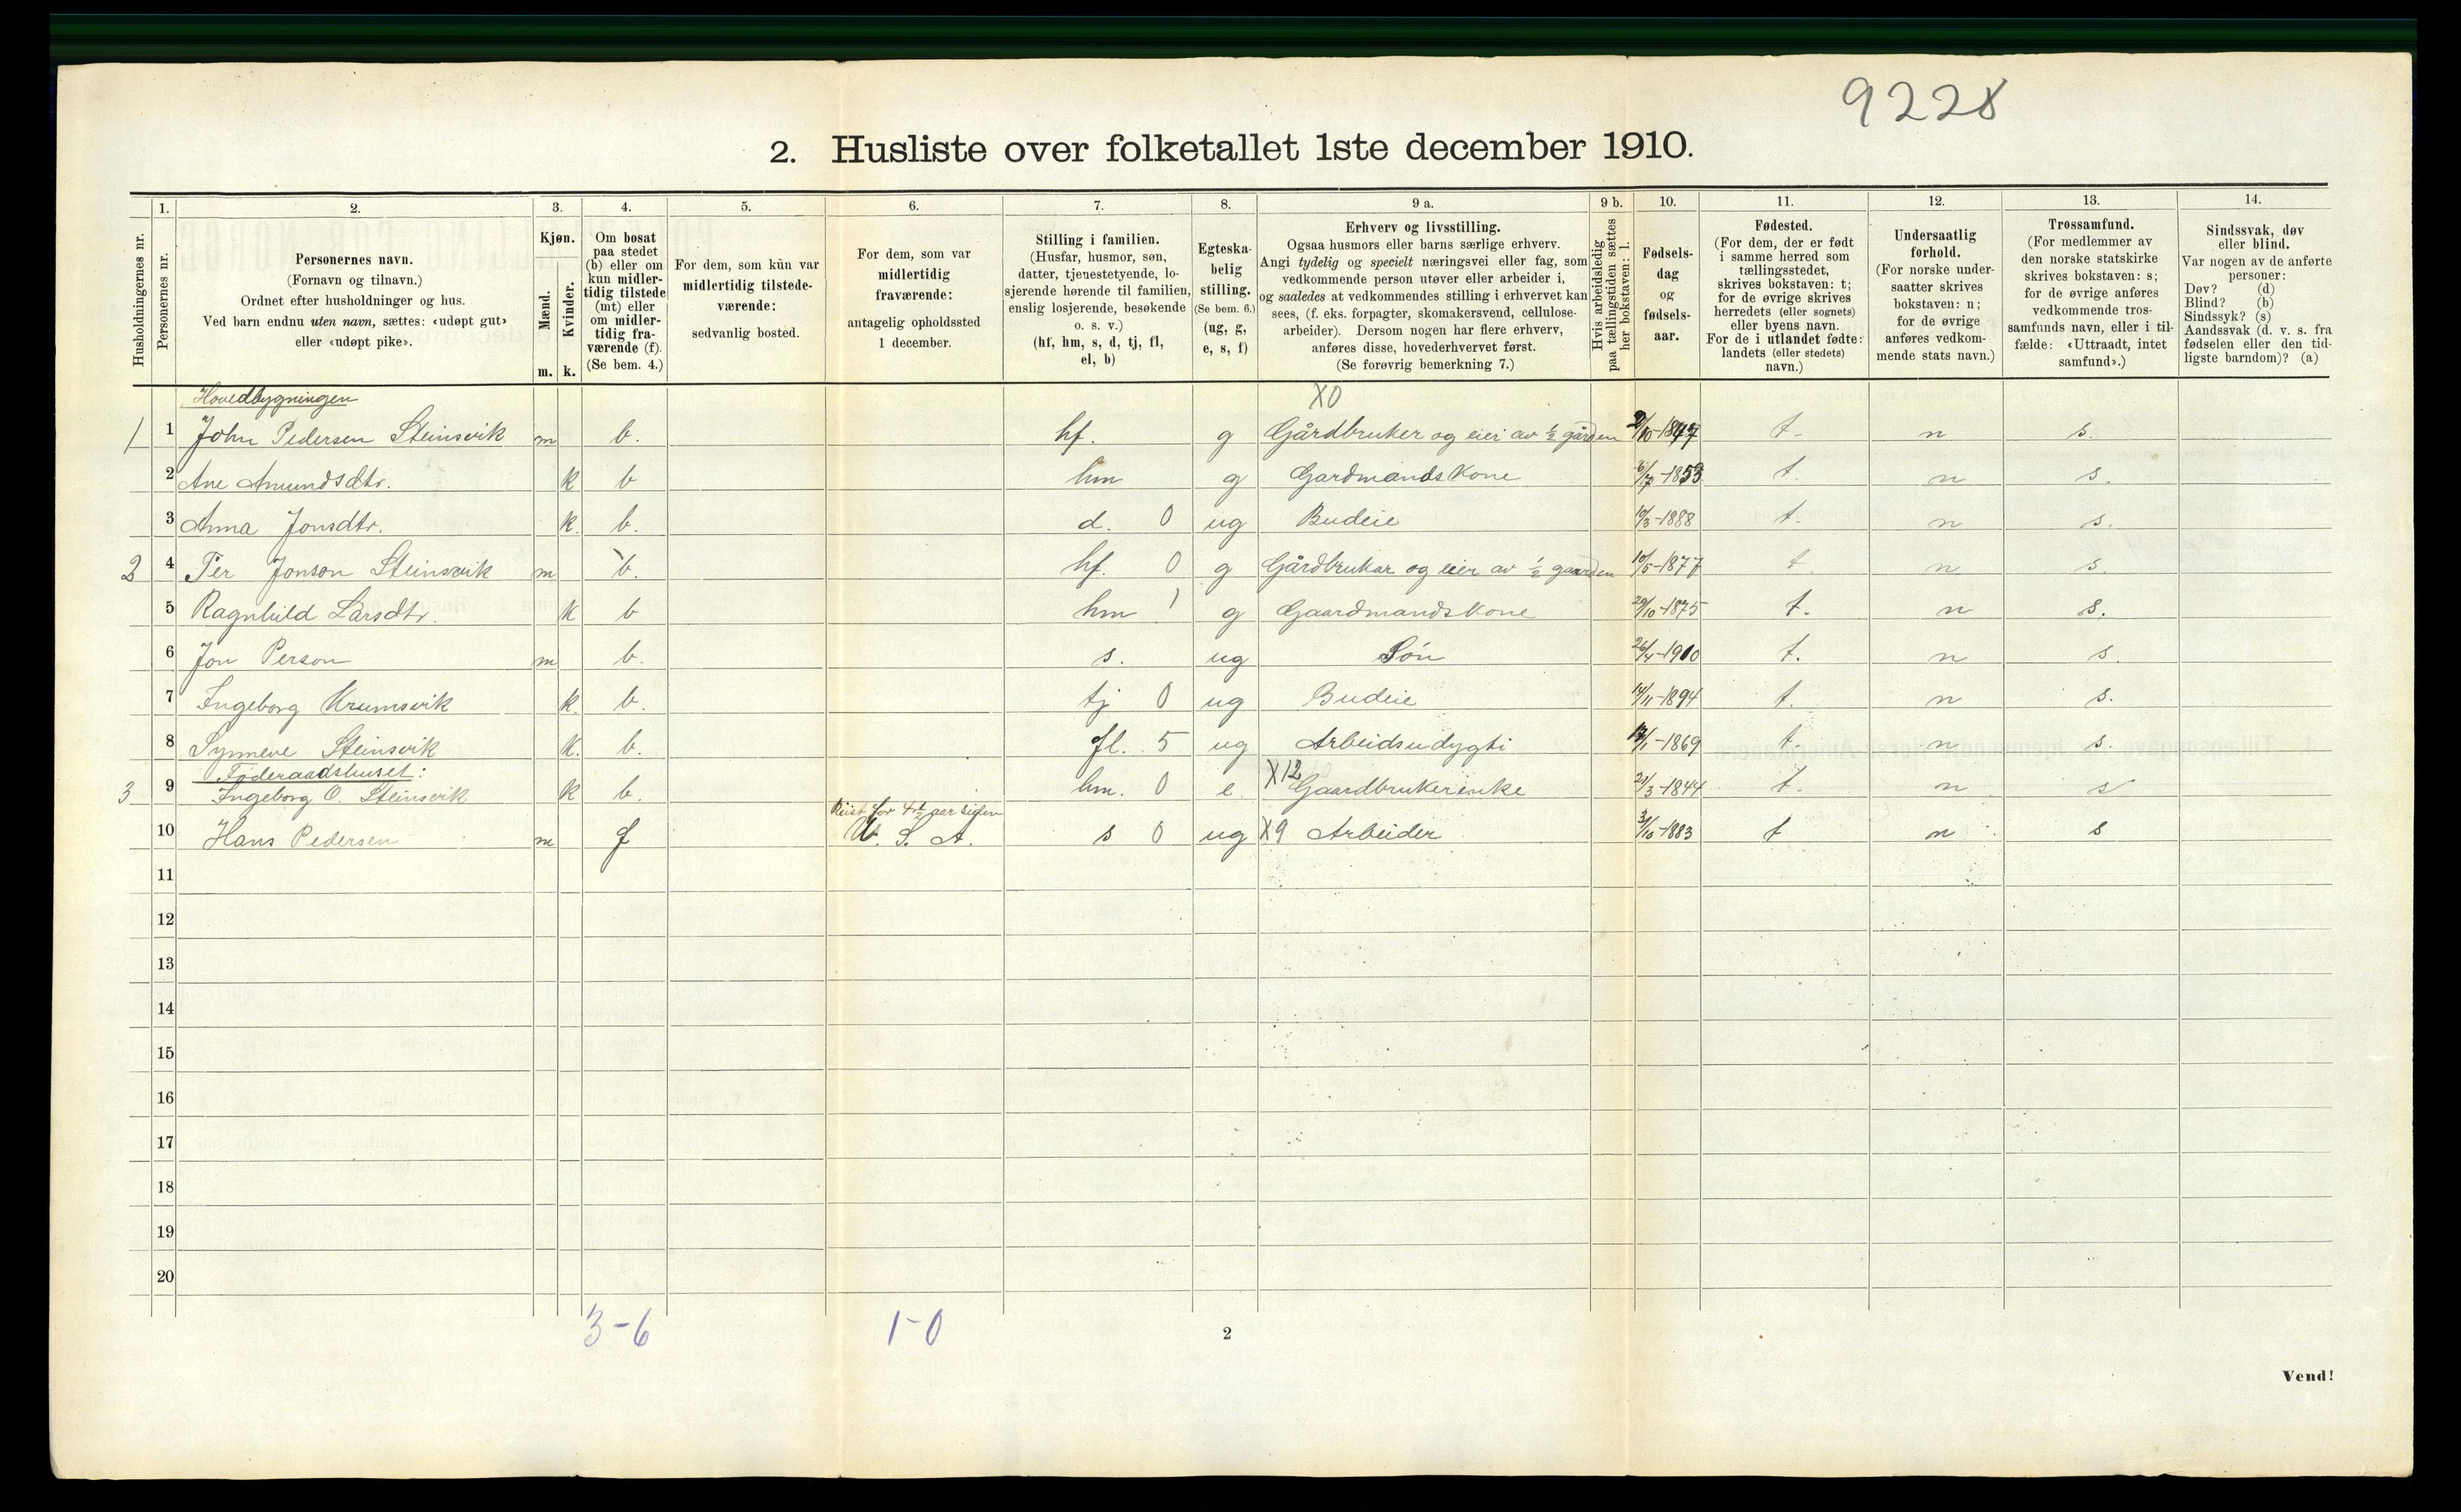 9228
2. Husliste over folketallet 1ste december 1910.
1. 2. 3. 4. 5. 6. 7. 8. 9 a. 9 b. 10. 11. 12. 13. 14.
Husholdningernes nr.
Personernes nr.
Personernes navn.
(Fornavn og tilnavn.)
Ordnet efter husholdninger og hus.
Ved barn endnu uten navn, sættes: «udøpt gut»
eller «udøpt pike».
Kjøn.
Mænd.
Kvinder.
m. k.
Om bosat
paa stedet
(b) eller om
kun midler-
tidig tilstede
(mt) eller
om midler-
tidig fra-
værende (f).
(Se bem. 4.)
For dem, som kun var
midlertidig tilstede-
værende:
sedvanlig bosted.
For dem, som var
midlertidig
fraværende:
antagelig opholdssted
1 december.
Stilling i familien.
(Husfar, husmor, søn,
datter, tjenestetyende, lo-
sjerende hørende til familien,
enslig losjerende, besøkende
o. s. v.)
(hf, hm, s, d, tj, fl,
el, b)
Egteska-
belig
stilling.
(Se bem. 6.)
(ug, g,
e, s, f)
Erhverv og livsstilling.
Ogsaa husmors eller barns særlige erhverv.
Angi tydelig og specielt næringsvei eller fag, som
vedkommende person utøver eller arbeider i,
og saaledes at vedkommendes stilling i erhvervet kan
sees, (f. eks. forpagter, skomakersvend, cellulose-
arbeider). Dersom nogen har flere erhverv,
anføres disse, hovederhvervet først.
(Se forøvrig bemerkning 7.)
Hvis arbeidsledig
paa tællingstiden sættes
her bokstaven: l.
Fødsels-
dag
og
fødsels-
aar.
Fødested.
(For dem, der er født
i samme herred som
tællingsstedet,
skrives bokstaven: t;
for de øvrige skrives
herredets (eller sognets)
eller byens navn.
For de i utlandet fødte:
landets (eller stedets)
navn.)
Undersaatlig
forhold.
(For norske under-
saatter skrives
bokstaven: n;
for de øvrige
anføres vedkom-
mende stats navn.)
Trossamfund.
(For medlemmer av
den norske statskirke
skrives bokstaven: s;
for de øvrige anføres
vedkommende tros-
samfunds navn, eller i til-
fælde: «Uttraadt, intet
samfund».)
Sindssvak, døv
eller blind.
Var nogen av de anførte
personer:
Døv? (d)
Blind? (b)
Sindssyk? (s)
Aandssvak (d. v. s. fra
fødselen eller den tid-
ligste barndom)? (a)
Hovedbygningen X0
1 1 John Pedersen Steinsvik m b. hf. g Gårdbruker og eier av ½ gården 2/10-1847 t. n s.
2 Ane Amundsdtr. k b hm g Gardmandskone 6/7-1853 t. n s.
3 Anna Jonsdtr. k. b. d. 0 ug Budeie 10/3-1888 t. n s.
2 4 Per Jonson Steinsvik m b. hf. 0 g Gårdbrukar og eier av ½ gaarden 10/5-1877 t. n s.
5 Ragnhild Larsdtr. k b hm 1 g Gaardmandskone 29/10-1875 t. n s.
6 Jon Person m b. s. ug Søn 26/4-1910 t. n s.
7 Ingeborg Krumsvik k. b. tj 0 ug Budeie 14/11-1894 t. n s.
8 Synneve Steinsvik k. b. fl. 5 ug Arbeidsudygti 17/1-1869 t. n s.
Føderaadshuset:
3 9 Ingeborg O. Steinsvik k b. hm. 0 e. X12 Gaardbrukerenke 21/3-1844 t. n s
Reist for 4½ aar siden
10 Hans Pedersen m f U. S. A. s 0 ug X9 Arbeider 3/10-1883 t n s
11
12
13
14
15
16
17
18
19
20
3-6 1-0
2
Vend!